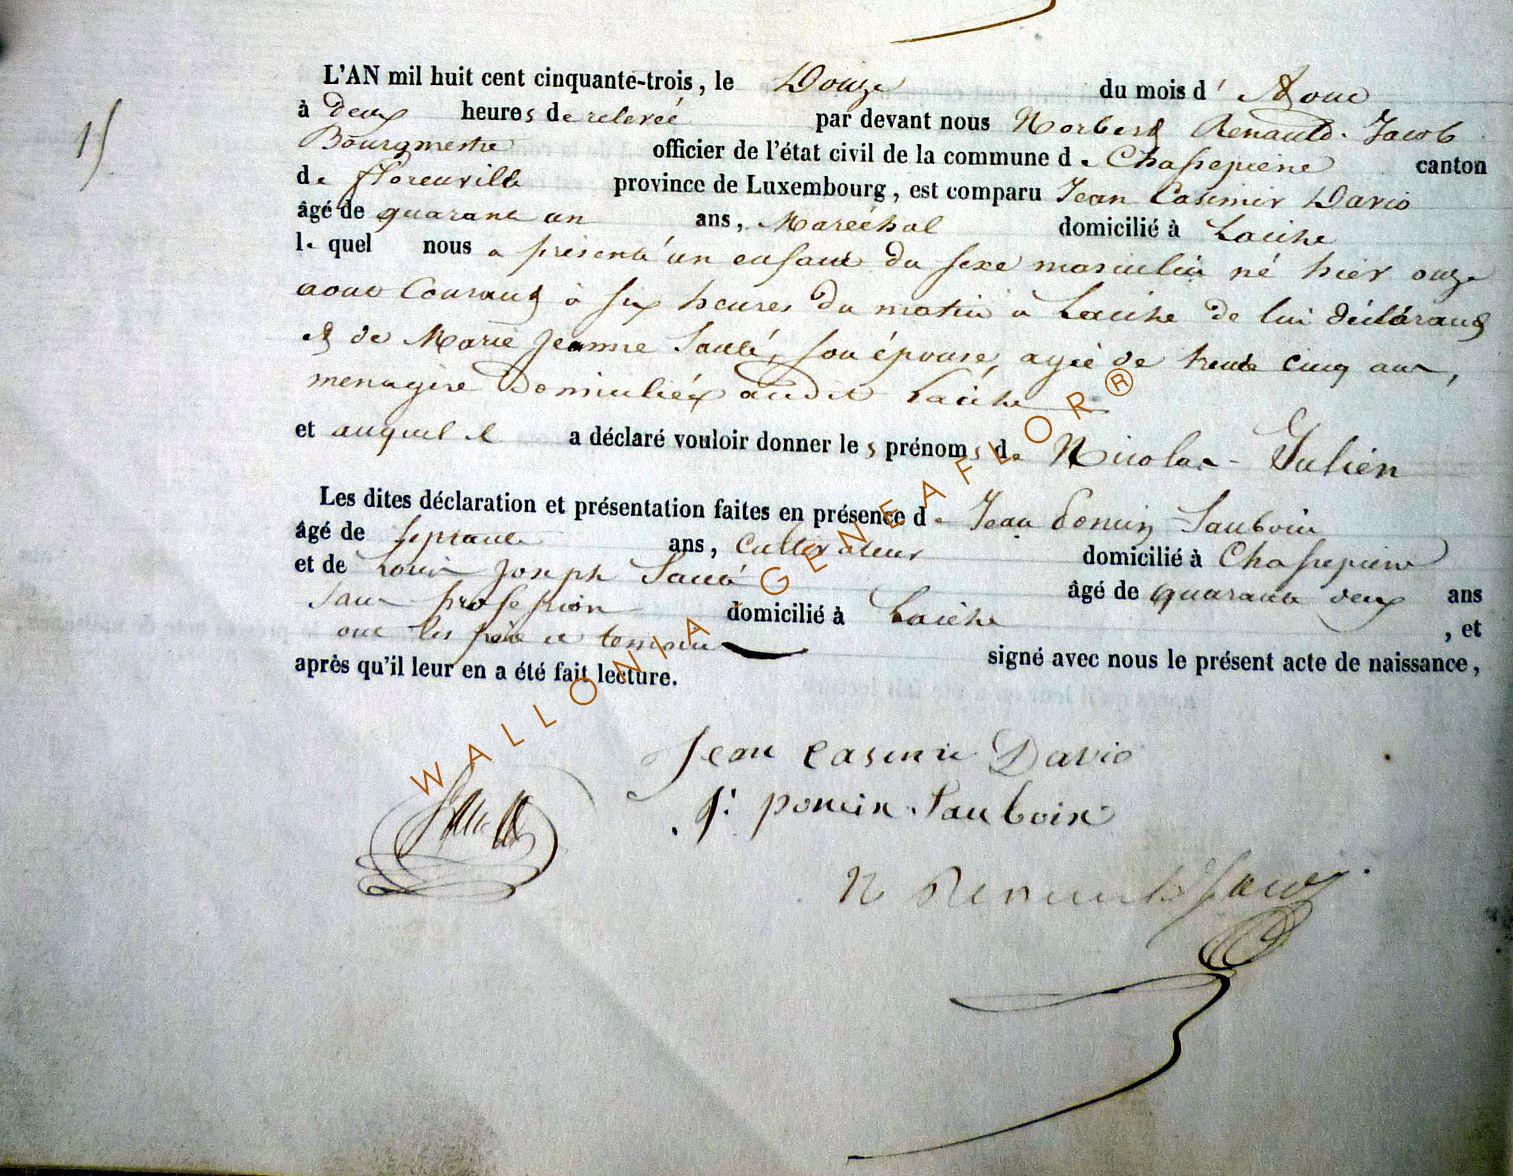 15
L'AN mil huit cent cinquante-trois, le Douze du mois d' Aout
à deux heures de relevée par devant nous Norbert Renauld-Jacob
Bourgmestre officier de l'état civil de la commune de Chassepierre canton
de florenville province de Luxembourg, est comparu Jean Casimir Dario
âgé de quarante un ans, Maréchal domicilié à Laiche
lequel nous a présenté un enfant du sexe masculin né hier onze
aout Courant à six heures du matin à Laiche de lui déclarant
et de Marie Jeanne Saulé, son épouse, agée de trente cinq ans,
menagère domiciliée audit Laiche
et auquel il a déclaré vouloir donner les prénoms de Nicolas-Julien
Les dites déclaration et présentation faites en présence de Jean Poncin Sauboin
âgé de septante ans, Cultivateur domicilié à Chassepierre
et de Louis Joseph Saulé âgé de quarante deux ans
sans profession domicilié à Laiche, et
ont les père et temoins signé avec nous le présent acte de naissance,
après qu'il leur en a été fait lecture.
Jean Casimir Dario
J: poncin Sauboin
N Renauld Jacob
WALLONIA GENEAFLOR®